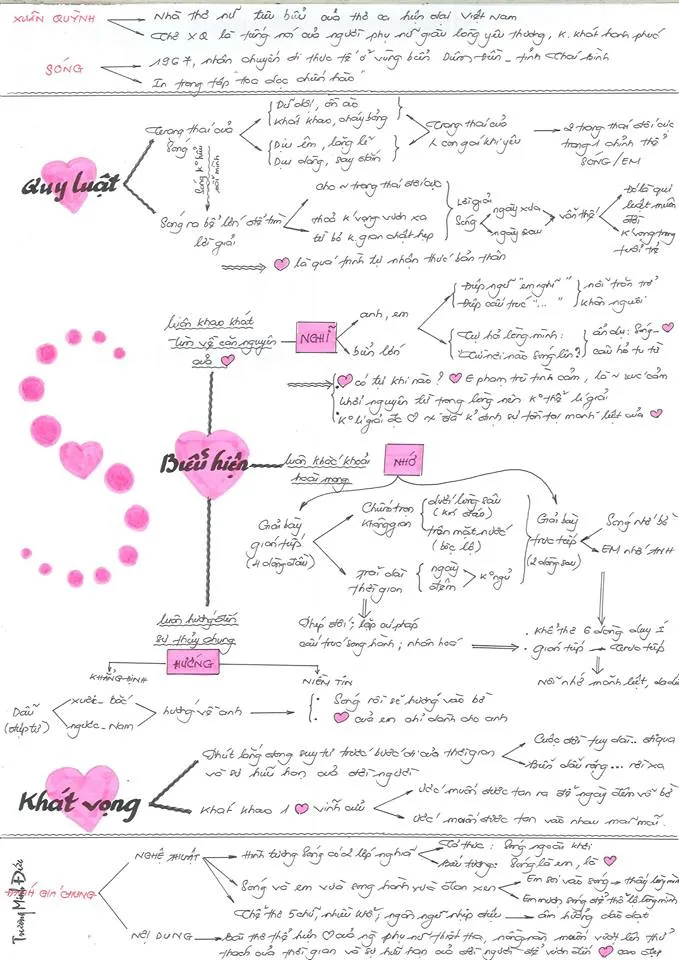 XUÂN QUỲNH
Nhà thơ nữ tiêu biểu của thơ ca hiện đại Việt Nam
Thơ XQ là tiếng nói của người phụ nữ giàu lòng yêu thương, k. khát hạnh phúc
SÓNG
1967, nhân chuyến đi thực tế ở vùng biển Diêm Điền - tỉnh Thái Bình
In trong tập "Hoa dọc chiến hào"
Quy luật
Trạng thái của sóng
Dữ dội, ồn ào
Khát khao, cháy bỏng
Dịu êm, lặng lẽ
Dịu dàng, say đắm
Trạng thái của
1 con gái khi yêu
2 trạng thái đối cực
trong 1 chỉnh thể
SÓNG / EM
Sóng k° hiểu
nổi mình
Sóng ra bể lớn để tìm
lời giải
cho ~ trạng thái đối cực
thoả k. vọng vươn xa
từ bỏ k. gian chật hẹp
Lời giải
Sóng
ngày xưa
ngày sau
vẫn thế
Đó là qui
luật muôn
đời
K. vọng trong
tuổi trẻ
là quá trình tự nhận thức bản thân
luôn khao khát
tìm về căn nguyên
của
NGHĨ
anh, em
biển lớn
Điệp ngữ "em nghĩ"
Điệp cấu trúc "..."
nỗi trăn trở
khôn nguôi
Tự hỏi lòng mình:
"Từ nơi nào sóng lên?"
ẩn dụ: Sóng -
câu hỏi tu từ
có từ khi nào? E phạm trù tình cảm, là ~ xúc cảm
khởi nguyên từ trong lòng nên k° thể lí giải
K° lí giải đc
k. định sự tồn tại mãnh liệt của
Biểu hiện
luôn khắc khoải
hoài mong
NHỚ
Giãi bày
gián tiếp
(4 dòng đầu)
Chiếm trọn
không gian
dưới lòng sâu
(kín đáo)
trên mặt nước
(bộc lộ)
Trải dài
thời gian
ngày
đêm
k° ngủ
Giãi bày
trực tiếp
(2 dòng sau)
Sóng nhớ bờ
EM nhớ ANH
Phép đối; lặp cú pháp
cấu trúc song hành; nhân hoá
Khổ thơ 6 dòng duy I
gián tiếp → trực tiếp
Nỗi nhớ mãnh liệt, da diết
luôn hướng đến
sự thủy chung
HƯỚNG
KHẲNG ĐỊNH
NIỀM TIN
Dẫu
(điệp từ)
xuôi - bắc
ngược - Nam
hướng về anh
Sóng rồi sẽ hướng vào bờ
của em chỉ dành cho anh
Khát vọng
Phút lắng đọng suy tư trước bước đi của thời gian
và sự hữu hạn của đời người
Cuộc đời tuy dài.. đi qua
Biển dẫu rộng ... rồi xa
Khát khao 1 vĩnh cửu
Ước muốn được tan ra để ngày đêm vỗ bờ
ước muốn được tan vào nhau mãi mãi.
ĐÁNH GIÁ CHUNG
NGHỆ THUẬT
Hình tượng Sóng có 2 lớp nghĩa
Tả thực: Sóng ngoài khơi
Biểu tượng: Sóng là em, là
Sóng và em vừa song hành vừa đan xen
Em soi vào sóng → thấy lòng mình
Em mượn sóng để thổ lộ lòng mình
Thể thơ 5 chữ, nhiều khổ, ngôn ngữ nhịp điệu
âm hưởng dào dạt
NỘI DUNG
Bài thơ thể hiện của ng phụ nữ thiết tha, nồng nàn muốn vượt lên thử
thách của thời gian và sự hữu hạn của đời người để vươn đến cao đẹp